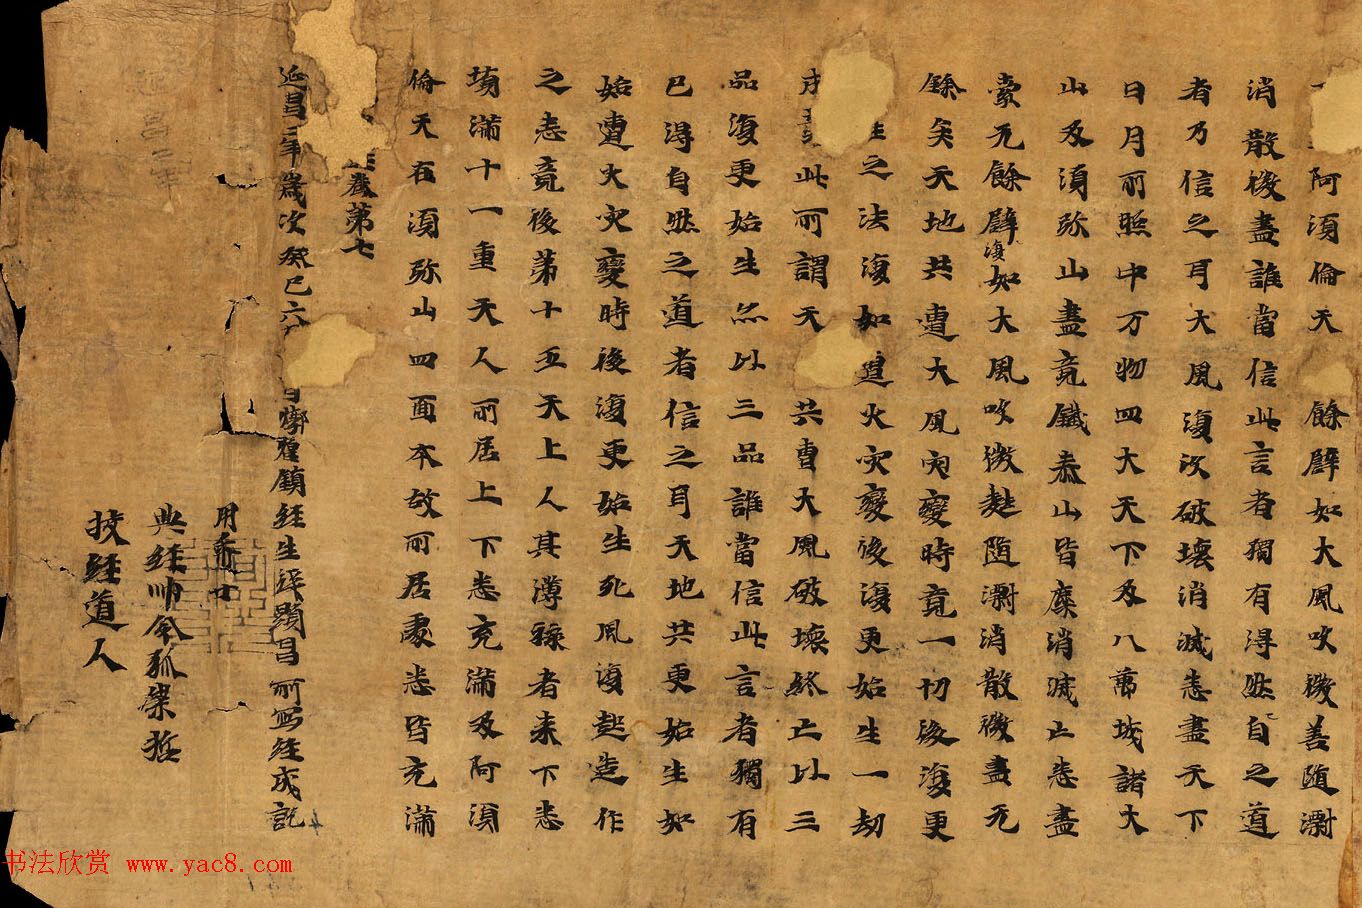 阿須倫天餘譬如大風吹微善随灁
消散微盡誰當信此言者獨有得然自之道
者乃信之耳大風復次破壞消滅悉盡天下
日月所照中万物四大天下及八萬城諸大
山及須弥山盡竟鐵恭山皆糜消滅亡悉盡
索无餘譬復如大風吹微麩随灁消散微盡无
餘矣天地共遭大風灾變時竟一切後復更
生之法復如遭火灾變後復更始生一劫
此所謂天共曹大風破壞終亡以三
品復更始生亦以三品誰當信此言者獨有
已得自然之道者信之耳天地共更始生如
始遭火灾變時後復更始生死風復起造作
之悉竟後第十五天上人其薄祿者来下悉
填滿十一重天人所居上下悉充滿及阿須
倫天在須弥山四面本故所居處悉皆充滿
卷第七
延昌二年歲次癸巳六日燉煌鎮經生顯昌所寫經成訖
用希廿
典經帥令狐崇哲
挍經道人
延昌二年
书法欣赏 www.yac8.com